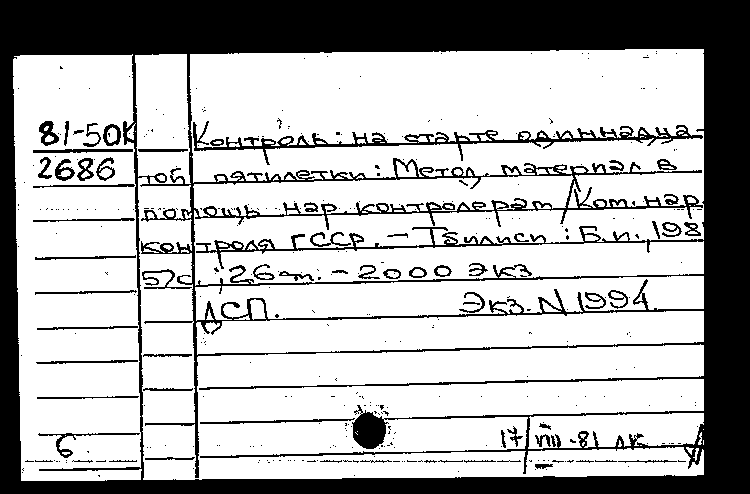 81-50К Контроль: на старте одиннадца-
2686 той пятилетки: Метод. материал в
помощь нар. контролерам / Ком. нар.
контроля ГССР. – Тбилиси : Б.и., 198
57с. ; 26 т. – 2000 экз
ДСП. Экз. N 1994.
6 17/VIII-81 лк